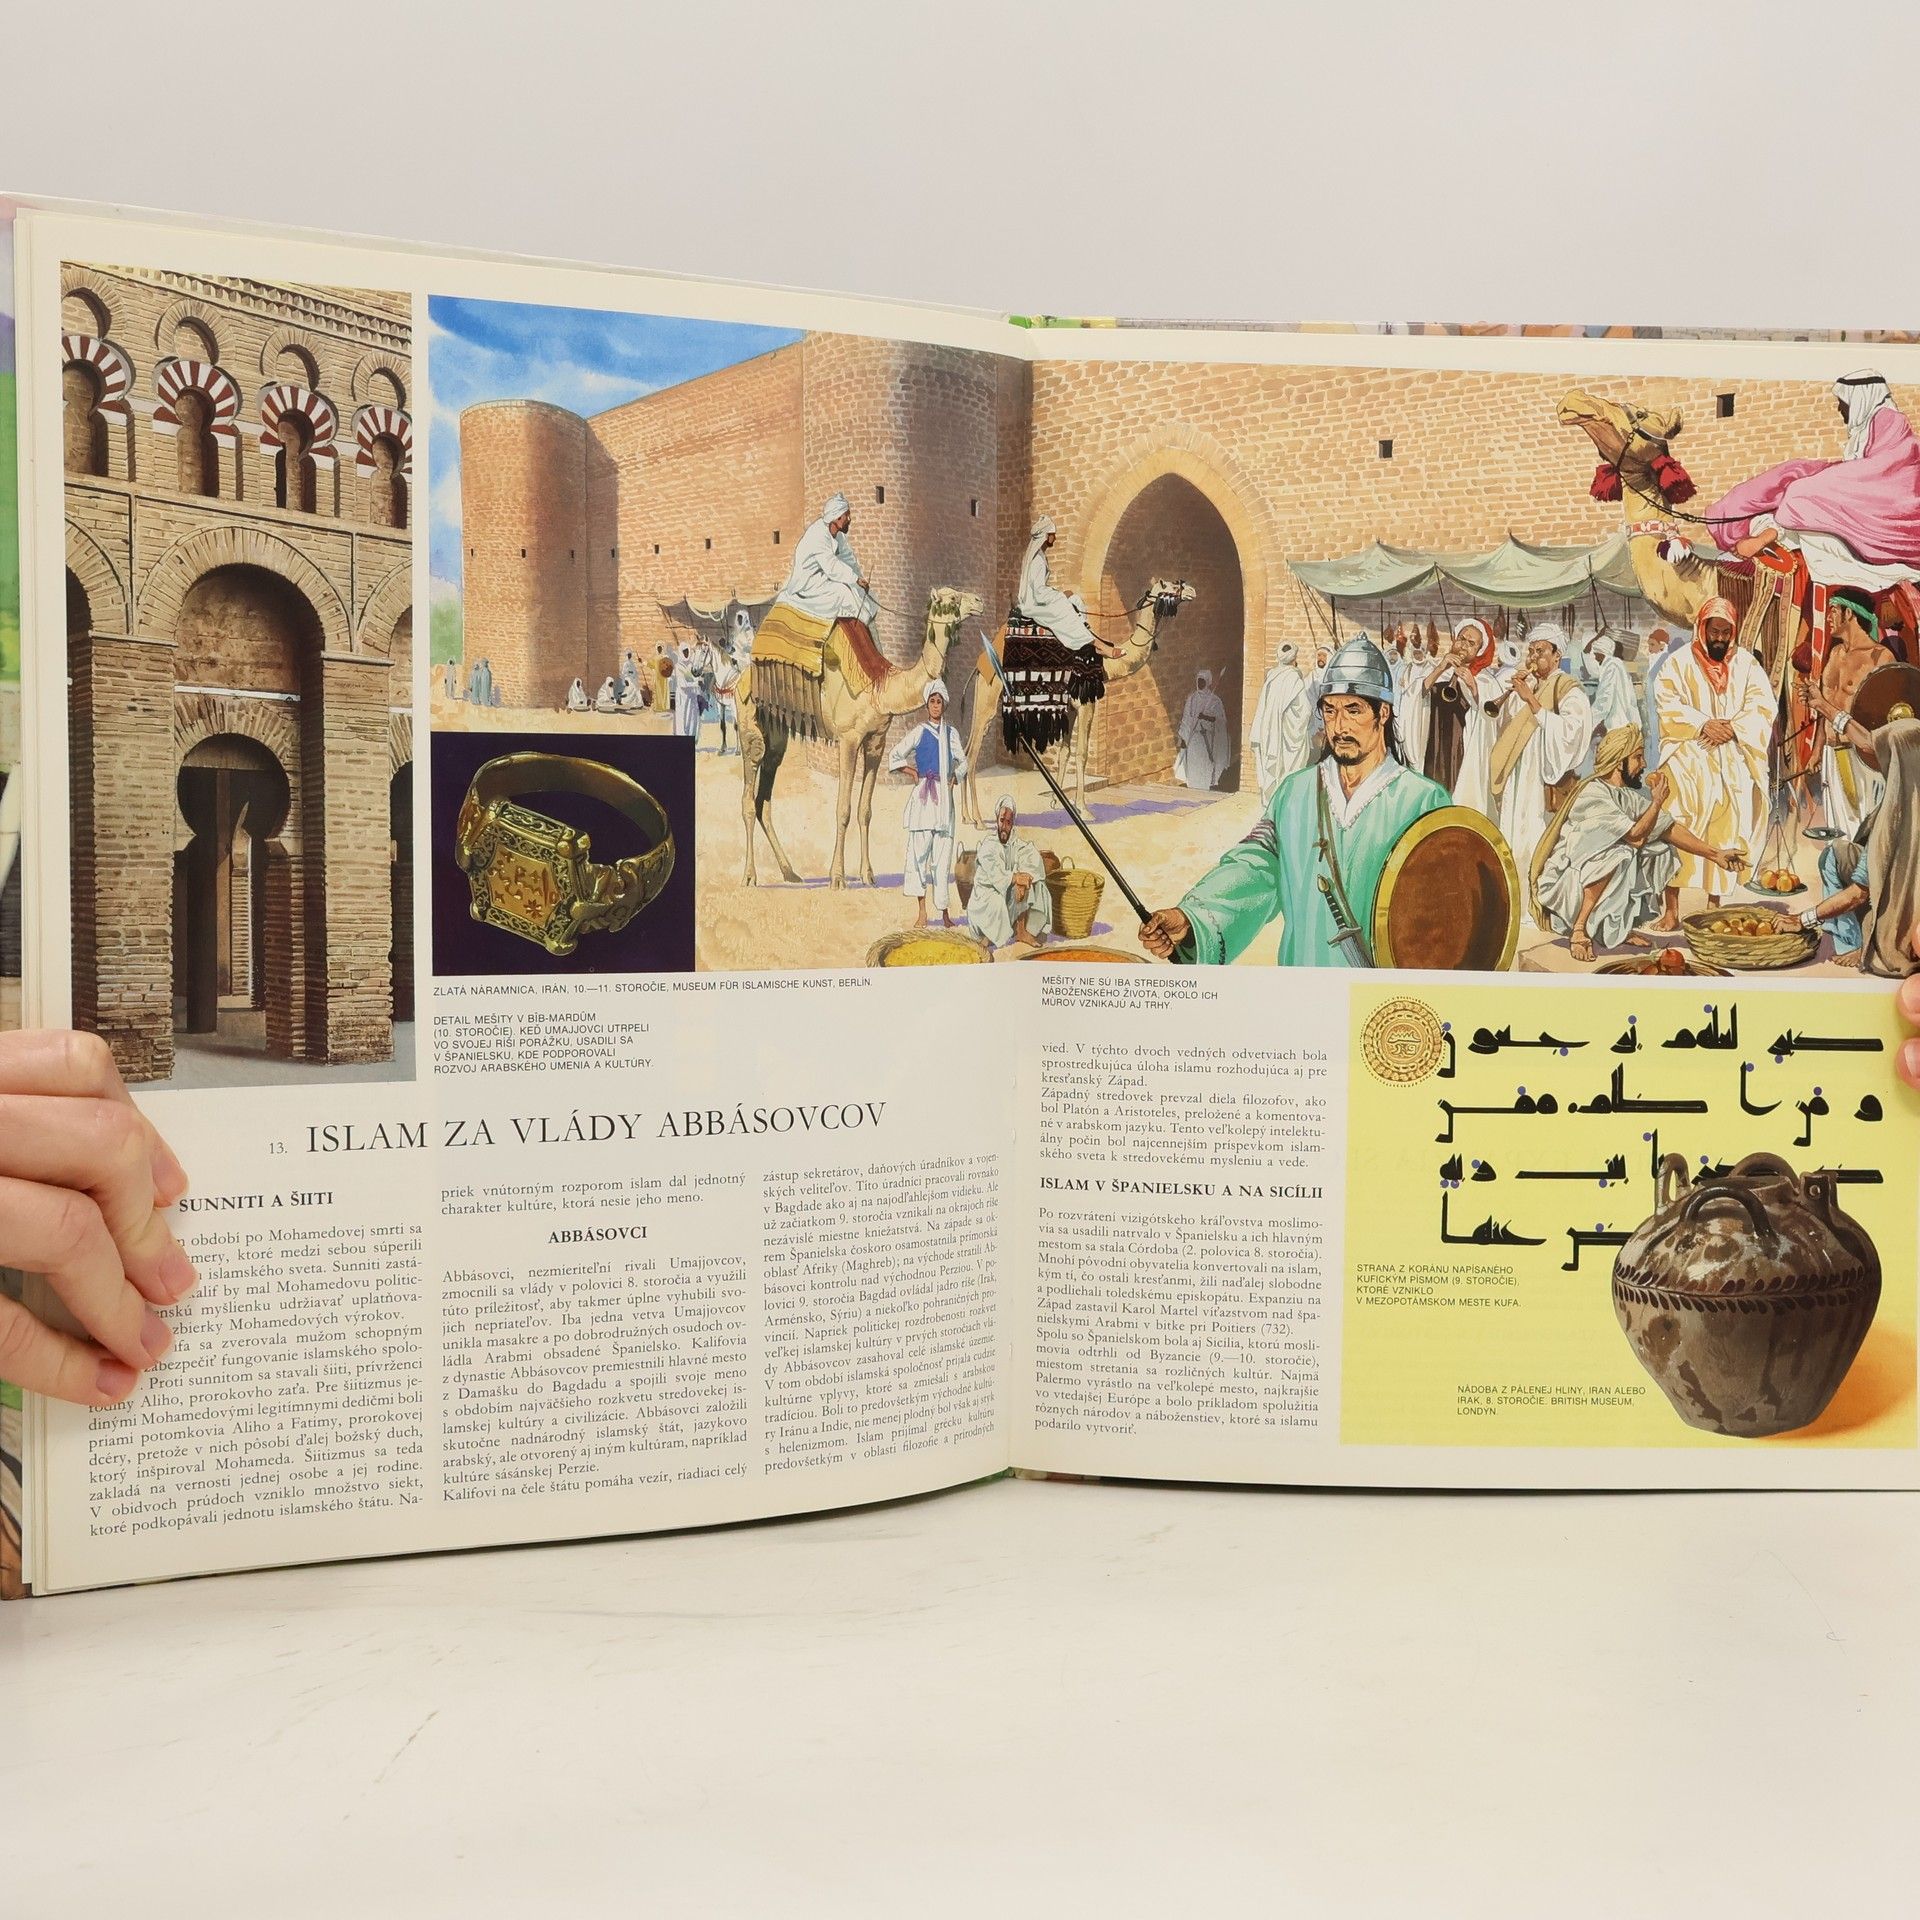 ZLATÁ NÁRAMNICA, IRÁN, 10.—11. STOROČIE, MUSEUM FÜR ISLAMISCHE KUNST, BERLÍN.
DETAIL MEŠITY V BÍB-MARDÚM
(10. STOROČIE). KEĎ UMAJJOVCI UTRPELI
VO SVOJEJ RÍŠI PORÁŽKU, USADILI SA
V ŠPANIELSKU, KDE PODPOROVALI
ROZVOJ ARABSKÉHO UMENIA A KULTÚRY.
13. ISLAM ZA VLÁDY ABBÁSOVCOV
SUNNITI A ŠIITI
období po Mohamedovej smrti sa
ktoré medzi sebou súperili
islamského sveta. Sunniti zastá-
kalif by mal Mohamedovu politic-
myšlienku udržiavať uplatňova-
zbierky Mohamedových výrokov.
sa zverovala mužom schopným
zabezpečiť fungovanie islamského spolo-
. Proti sunnitom sa stavali šiiti, prívrženci
rodiny Aliho, prorokovho zaťa. Pre šiitizmus je-
dinými Mohamedovými legitímnymi dedičmi boli
priami potomkovia Aliho a Fatímy, prorokovej
dcéry, pretože v nich pôsobí ďalej božský duch,
ktorý inšpiroval Mohameda. Šiitizmus sa teda
zakladá na vernosti jednej osobe a jej rodine.
V obidvoch prúdoch vzniklo množstvo siekt,
ktoré podkopávali jednotu islamského štátu. Na-
priek vnútorným rozporom islam dal jednotný
charakter kultúre, ktorá nesie jeho meno.
ABBÁSOVCI
Abbásovci, nezmieriteľní rivali Umajjovcov,
zmocnili sa vlády v polovici 8. storočia a využili
túto príležitosť, aby takmer úplne vyhubili svo-
jich nepriateľov. Iba jedna vetva Umajjovcov
unikla masakre a po dobrodružných osudoch ov-
ládla Arabmi obsadené Španielsko. Kalifovia
z dynastie Abbásovcov premiestnili hlavné mesto
z Damašku do Bagdadu a spojili svoje meno
s obdobím najväčšieho rozkvetu stredovekej is-
lamskej kultúry a civilizácie. Abbásovci založili
skutočne nadnárodný islamský štát, jazykovo
arabský, ale otvorený aj iným kultúram, napríklad
kultúre sásánskej Perzie.
Kalifovi na čele štátu pomáha vezír, riadiaci celý
zástup sekretárov, daňových úradníkov a vojen-
ských veliteľov. Títo úradníci pracovali rovnako
v Bagdade ako aj na najodľahlejšom vidieku. Ale
už začiatkom 9. storočia vznikali na okrajoch ríše
nezávislé miestne kniežatstvá. Na západe sa ok-
rem Španielska čoskoro osamostatnila prímorská
oblasť Afriky (Maghreb); na východe stratili Ab-
básovci kontrolu nad východnou Perziou. V po-
lovici 9. storočia Bagdad ovládal jadro ríše (Irak,
Arménsko, Sýriu) a niekoľko pohraničných pro-
vincií. Napriek politickej rozdrobenosti rozkvet
veľkej islamskej kultúry v prvých storočiach vlá-
dy Abbásovcov zasahoval celé islamské územie.
V tom období islamská spoločnosť prijala cudzie
kultúrne vplyvy, ktoré sa zmiešali s arabskou
tradíciou. Boli to predovšetkým východné kultú-
ry Iránu a Indie, nie menej plodný bol však aj styk
s helenizmom. Islam prijímal grécku kultúru
predovšetkým v oblasti filozofie a prírodných
MEŠITY NIE SÚ IBA STREDISKOM
NÁBOŽENSKÉHO ŽIVOTA, OKOLO ICH
MÚROV VZNIKAJÚ AJ TRHY.
vied. V týchto dvoch vedných odvetviach bola
sprostredkujúca úloha islamu rozhodujúca aj pre
kresťanský Západ.
Západný stredovek prevzal diela filozofov, ako
bol Platón a Aristoteles, preložené a komentova-
né v arabskom jazyku. Tento veľkolepý intelektu-
álny počin bol najcennejším príspevkom islam-
ského sveta k stredovekému mysleniu a vede.
ISLAM V ŠPANIELSKU A NA SICÍLII
Po rozvrátení vizigótskeho kráľovstva moslimo-
via sa usadili natrvalo v Španielsku a ich hlavným
mestom sa stala Córdoba (2. polovica 8. storočia).
Mnohí pôvodní obyvatelia konvertovali na islam,
kým tí, čo ostali kresťanmi, žili naďalej slobodne
a podliehali toledskému episkopátu. Expanziu na
Západ zastavil Karol Martel víťazstvom nad špa-
nielskymi Arabmi v bitke pri Poitiers (732).
Spolu so Španielskom bola aj Sicília, ktorú mosli-
movia odtrhli od Byzancie (9.—10. storočie),
miestom stretania sa rozličných kultúr. Najmä
Palermo vyrástlo na veľkolepé mesto, najkrajšie
vo vtedajšej Európe a bolo príkladom spolužitia
rôznych národov a náboženstiev, ktoré sa islamu
podarilo vytvoriť.
STRANA Z KORÁNU NAPÍSANÉHO
KUFICKÝM PÍSMOM (9. STOROČIE),
KTORÉ VZNIKLO
V MEZOPOTÁMSKOM MESTE KUFA.
NÁDOBA Z PÁLENEJ HLINY, IRAN ALEBO
IRAK, 8. STOROČIE. BRITISH MUSEUM,
LONDÝN.